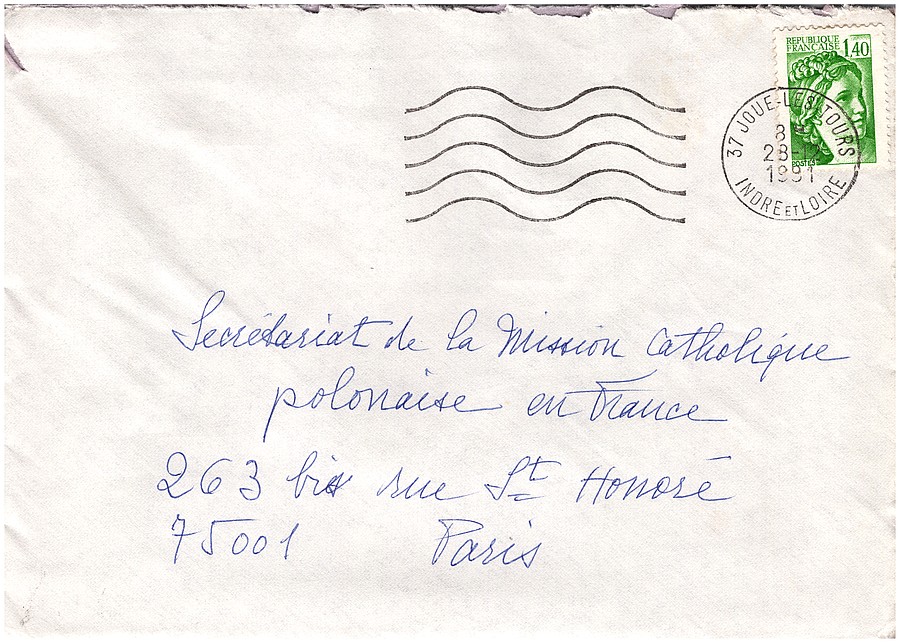 REPUBLIQUE
FRANÇAISE 1,40
POSTES
37 JOUE-LES-TOURS
8
28-12
1991
INDRE ET LOIRE
Secrétariat de la Mission Catholique
polonaise en France
263 bis rue St Honoré
75001 Paris